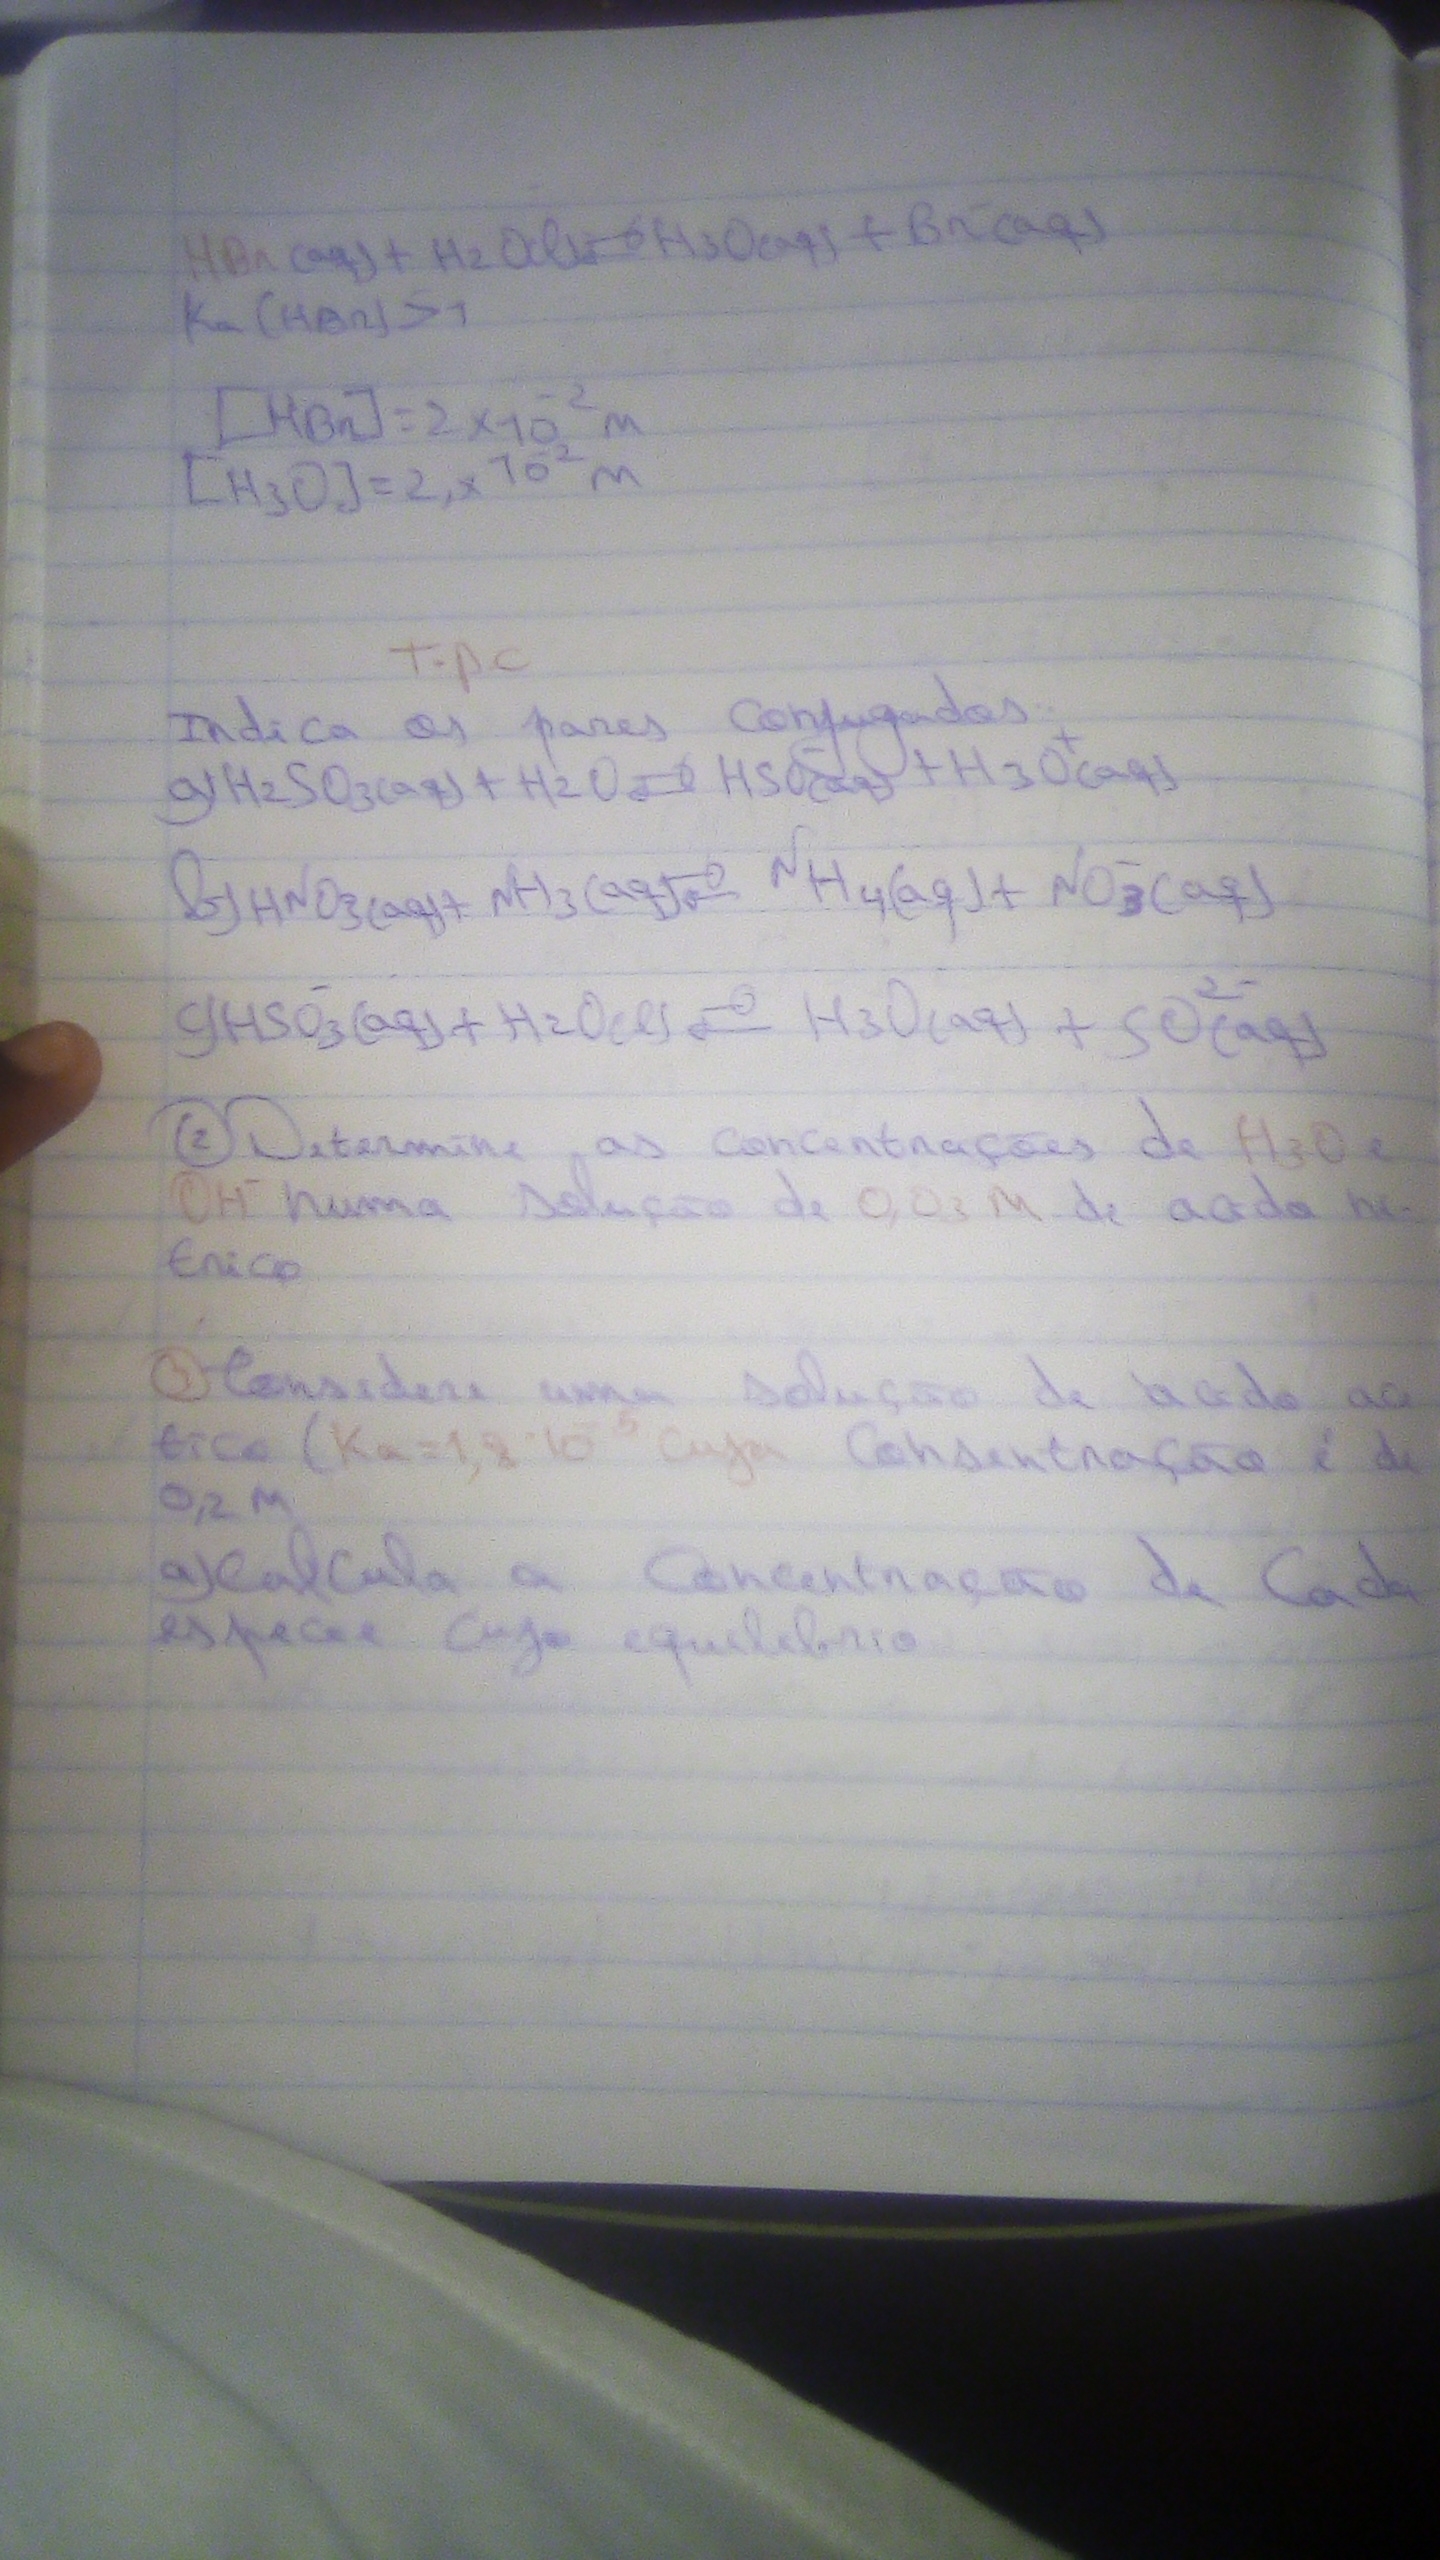 HBr(aq) + H2O(l) ⇌ H3O(aq) + Br⁻(aq)
Ka (HBr) > 1
[HBr] = 2 x 10⁻² M
[H3O] = 2, x 10⁻² M
T.p.c
Indica os pares Conjugados:
a) H2SO3(aq) + H2O ⇌ HSO⁻(aq) + H3O⁺(aq)
b) HNO3(aq) + NH3(aq) ⇌ NH4(aq) + NO3⁻(aq)
c) HSO3⁻(aq) + H2O(l) ⇌ H3O(aq) + SO²⁻(aq)
② Determine as concentrações de H3O e
OH⁻ numa solução de 0,03 M de acido ni-
trico
③ Considere uma solução de acido ac
tico (Ka = 1,8·10⁻⁵ cuja Consentração é de
0,2 M
a) Calcula a Concentração de Cada
especie cujo equilibrio